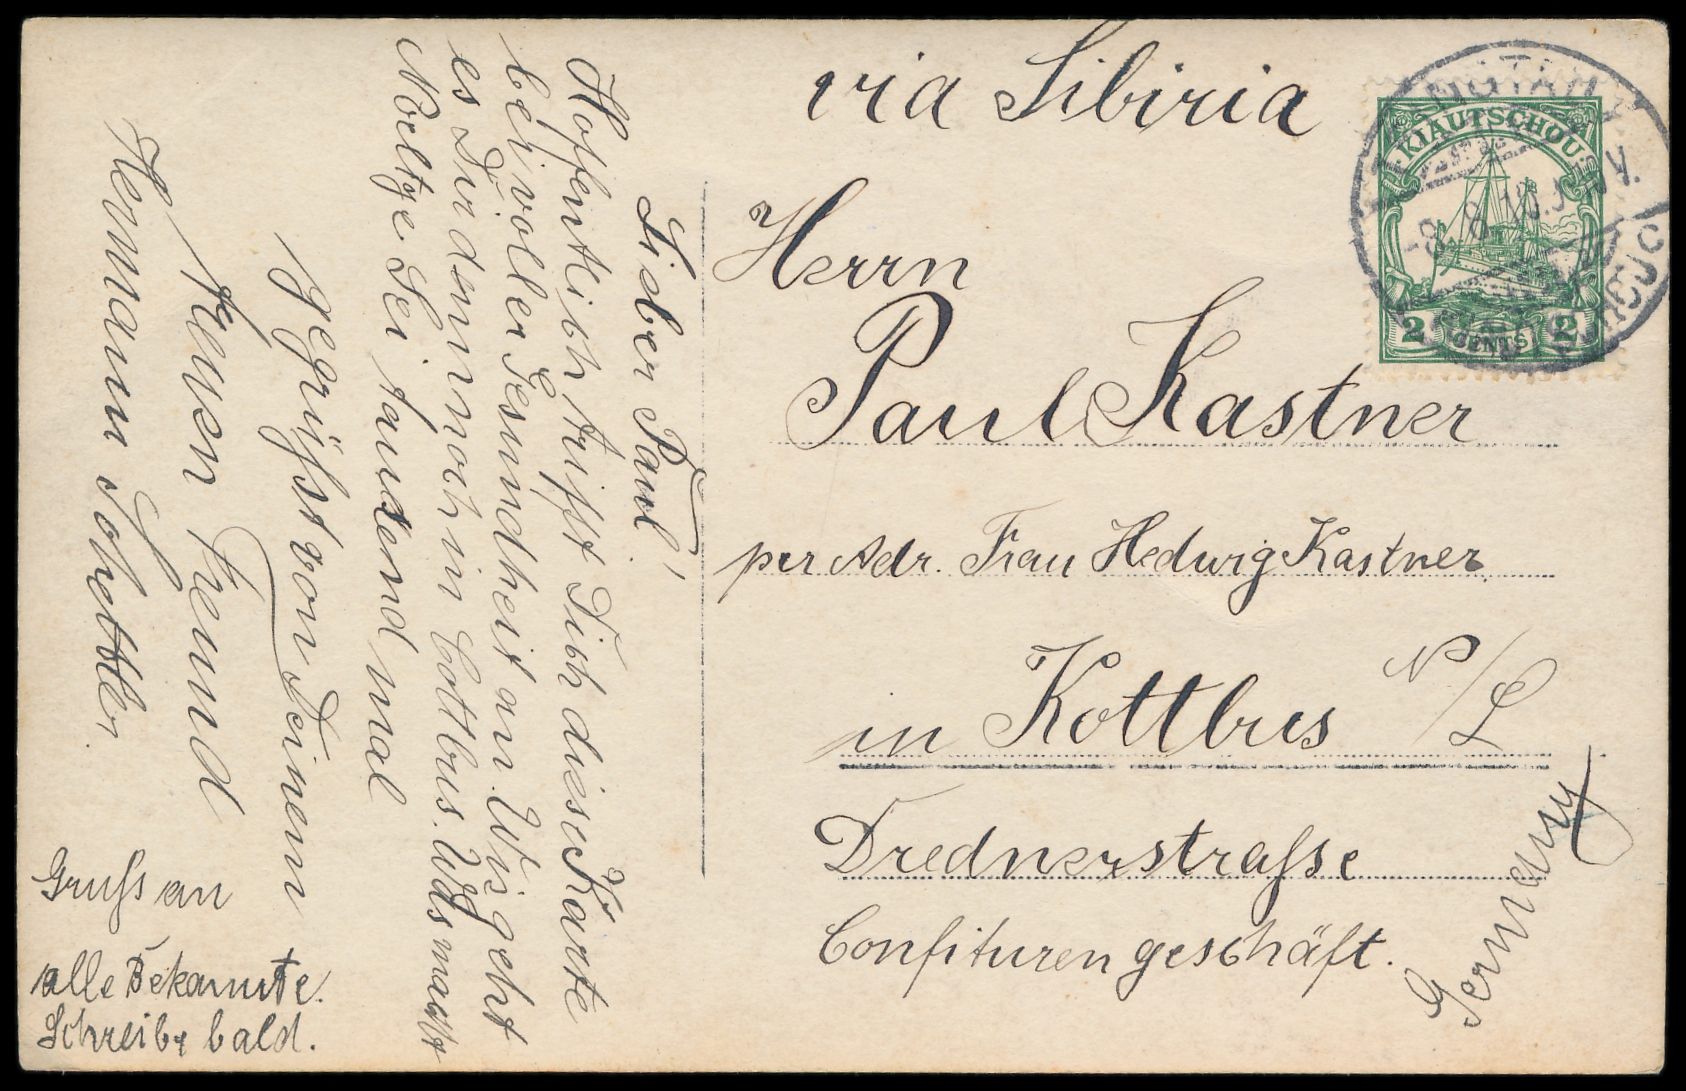 via Sibiria
KIAUTSCHOU
2 CENTS 2
TSINGTAU
KIAUTSCHOU
Herrn
Paul Kastner
per Adr. Frau Hedwig Kastner
in Kottbus N/L
Drednerstraſse
Confiturengeschäft.
Germany
Lieber Paul!
Hoffentlich trifft Dich diese Karte
bei voller Gesundheit an. Wie geht
es Dir denn noch in Cottbus. Was macht
Noeltze Sei tausend mal
gegrüſst von Deinem
Freund
Hermann
Gruſs an
alle Bekannte.
Schreibe bald.